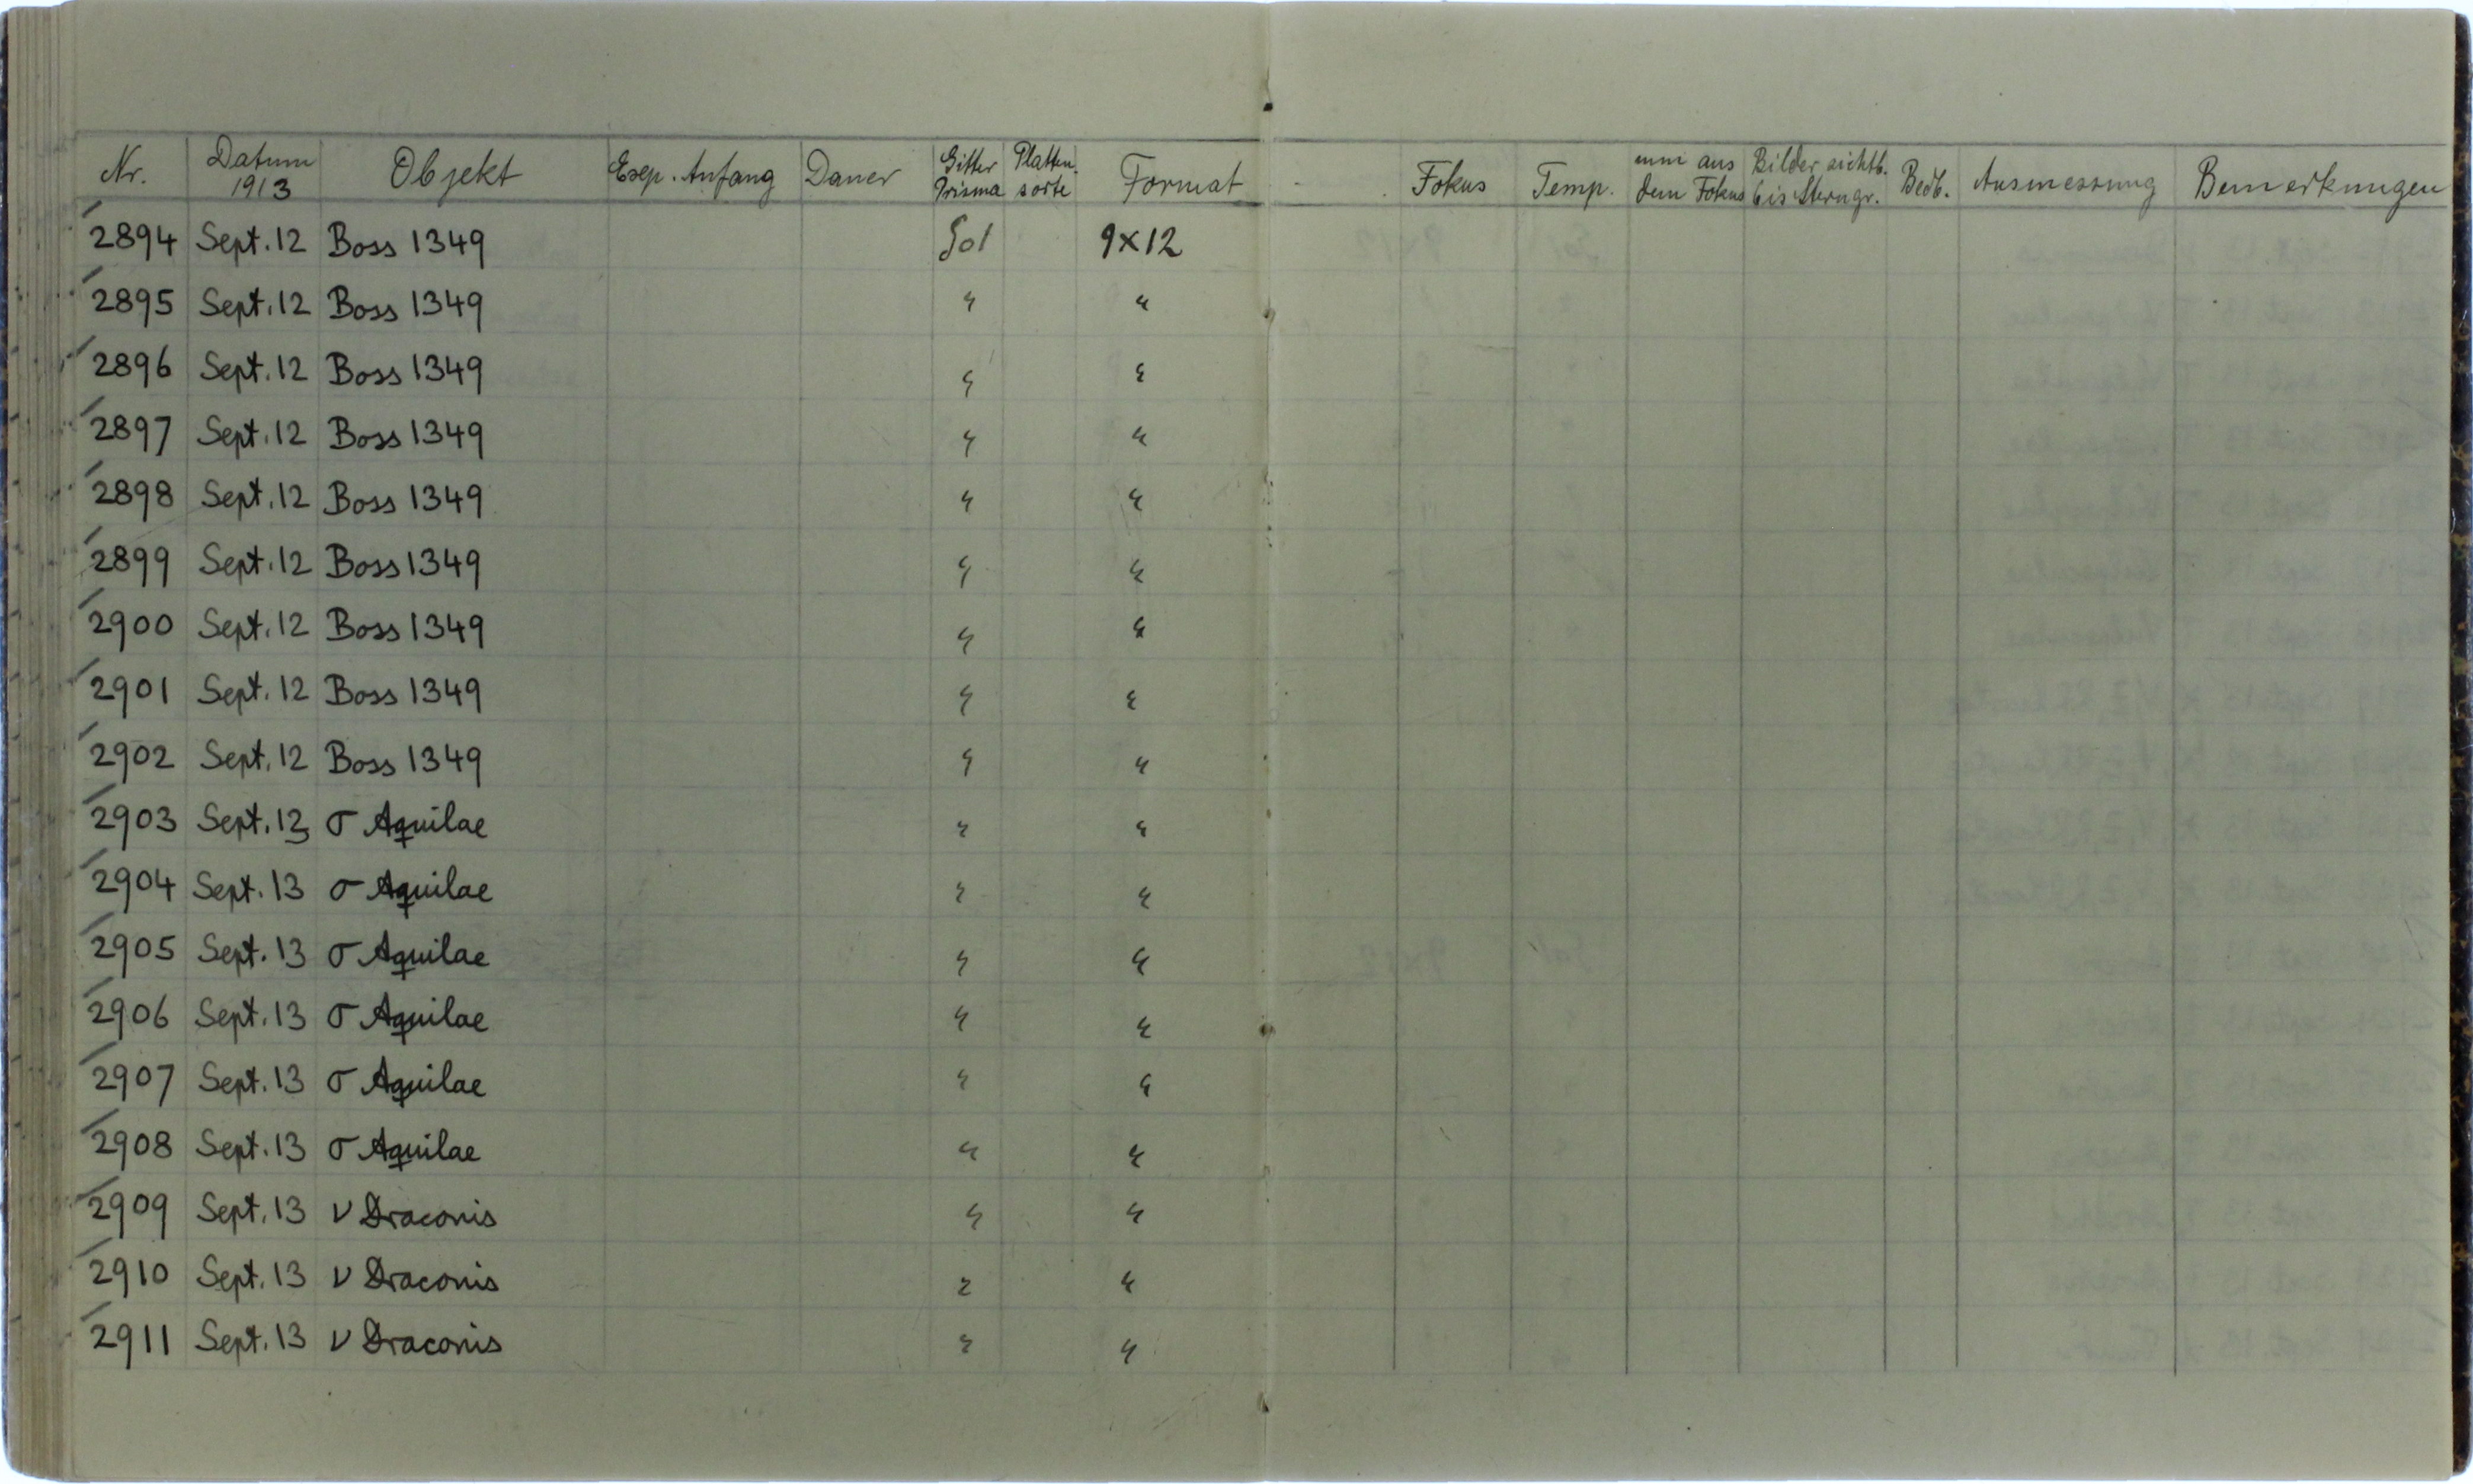 Nr. Datum 1913 Objekt Exp. Anfang Dauer Gitter Prisma Platten-sorte Format Fokus Temp. mm aus dem Fokus Bilder sichtb. bis Sterngr. Beob. Ausmessung Bemerkungen
2894 Sept. 12 Boss 1349 9×12
2895 Sept. 12 Boss 1349 " "
2896 Sept. 12 Boss 1349 " "
2897 Sept. 12 Boss 1349 " "
2898 Sept. 12 Boss 1349 " "
2899 Sept. 12 Boss 1349 " "
2900 Sept. 12 Boss 1349 " "
2901 Sept. 12 Boss 1349 " "
2902 Sept. 12 Boss 1349 " "
2903 Sept. 13 σ Aquilae " "
2904 Sept. 13 σ Aquilae " "
2905 Sept. 13 σ Aquilae " "
2906 Sept. 13 σ Aquilae " "
2907 Sept. 13 σ Aquilae " "
2908 Sept. 13 σ Aquilae " "
2909 Sept. 13 ν Draconis " "
2910 Sept. 13 ν Draconis " "
2911 Sept. 13 ν Draconis " "